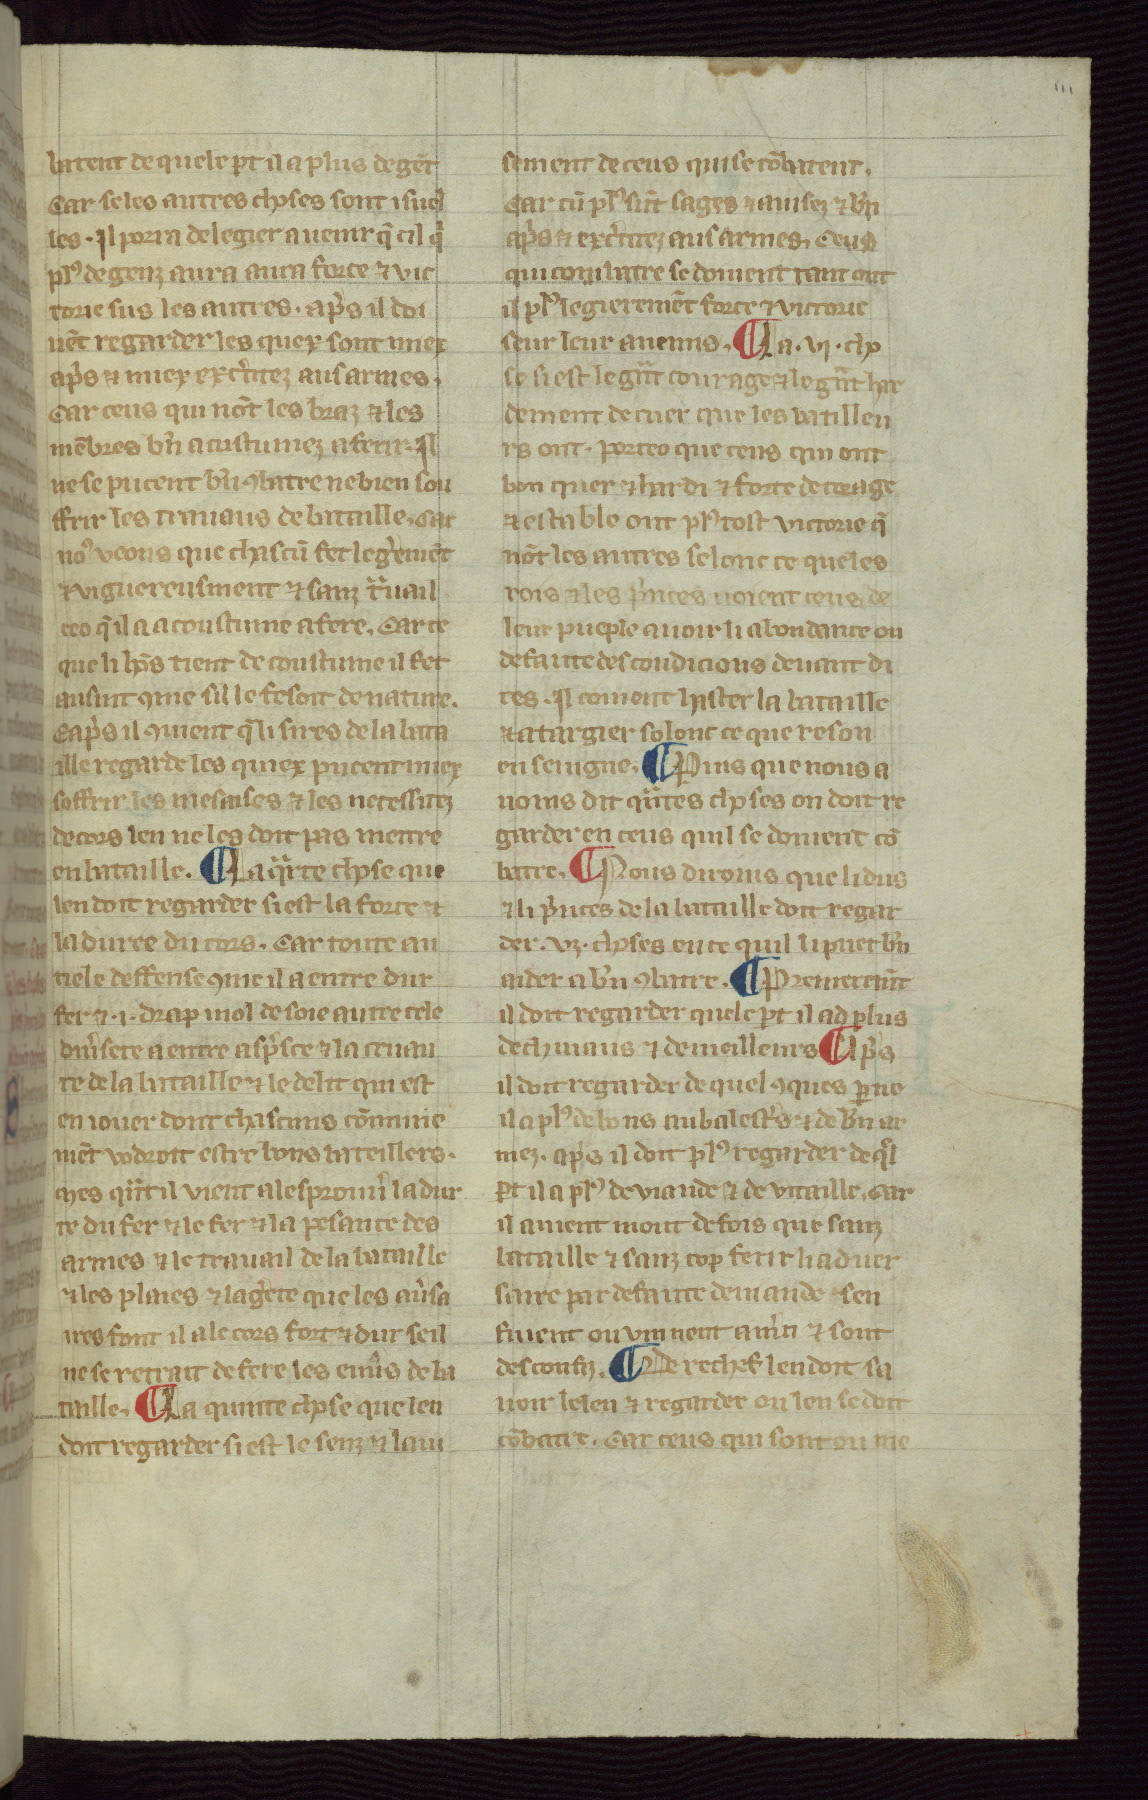 batent de quele ꝑt il a plus de gẽt
Car se les autres choses sont isuel
les. Il porra de legier auenir q̃ cil q̃
plꝰ de genz aura aura force ⁊ vic
torie sus les autres. apͥs il doi
uẽt regarder les quex sont miex
apͥs ⁊ miex exͨitez aus armes.
Car ceus qui nõt les braz ⁊ les
mẽbres bñ acustumez a ferir. Il
ne se pueent bñ ꝯbatre ne bien sou
ffrir les trauaus de bataille. Car
noꝰ veons que chascũ fet legͥemẽt
⁊ viguereusment ⁊ sanz tͣuail
ceo q̃ il a acoustume a fere. Car ce
que li hõs tient de coustume il fet
ausint ꝯme sil le fesoit de nature.
Eapͥs il ꝯuient q̃ li sires de la bata
ille regarde les quiex pueent miex
soffrir les mesaises ⁊ les necessitez
de cors len ne les doit pas mettre
en bataille. ¶ La qͣrte chose que
len doit regarder si est la force ⁊
la duree du cors. Car toute au
tiele deffense ꝯme il a entre dur
fer ⁊ .i. drap mol de soie autre tele
diuͥsete a entre aspͥsce ⁊ la cruau
te de la bataille ⁊ le delit qui est
en iouer dont chascuns cõmune
mẽt vodroit estre bons bateillers.
Mes qͣnt il vient a lesprouuͥ la dur
te du fer ⁊ le fer ⁊ la pesance des
armes ⁊ le trauail de la bataille
⁊ les plaies ⁊ lagͥete que les auͥsa
ires font il a le cors fort ⁊ dur se il
ne se retrait de fere les euuͥs de ba
taille. ¶ La quinte chose que len
doit regarder si est le senz ⁊ laui
sement de ceus qui se cõbatent.
Car cũ plꝰ sũt sages ⁊ auisez ⁊ bñ
apͥs ⁊ exͨitez aus armes. Ceus
qui combatre se doiuent tant ont
il plꝰ legieremẽt force ⁊ victorie
seur leur anemis. ¶ La .vi. cho
se si est le gͣnt courage ⁊ le gͣnt har
dement de cuer que les batilleu
rs ont. porceo que ceus qui ont
bon quer ⁊ hardi ⁊ forte de corage
⁊ estable ont plꝰ tost victorie q̃
nõt les autres selonc ce que les
rois ⁊ les pͥnces uoient ceus de
leur pueple auoir li abondance ou
defaute des condicions deuant di
tes. Il conuient haster la bataille
⁊ atargier solonc ce que reson
enseingne. ¶ Puis que nous a
uoms dit qͣntes choses on doit re
garder en ceus quil se doiuent cõ
batre. ¶ Nous diroms que li dus
⁊ li pͥnces de la bataille doit regar
der .vi. choses en ce quil li puet bñ
aider a bñ ꝯbatre. ¶ Premeremẽt
il doit regarder quele ꝑt il ad plus
de cheuaus ⁊ de meilleurs ¶ apͥs
il doit regarder de quel ꝯques ꝑtie
il a plꝰ de bons aubalestͥs ⁊ de bñ ar
mez. apͥs il doit plꝰ regarder de q̃l
ꝑt il a plꝰ de viande ⁊ de vitaille. Car
il auient mout de fois que sanz
bataille ⁊ sanz cop ferir li aduer
saire par defaute de uiande sen
fuient ou vin nent a mͥci ⁊ sont
desconfiz. ¶ De rechef len doit sa
uoir le leu ⁊ regarder ou len se doit
cõbatre. Car ceus qui sont ou me